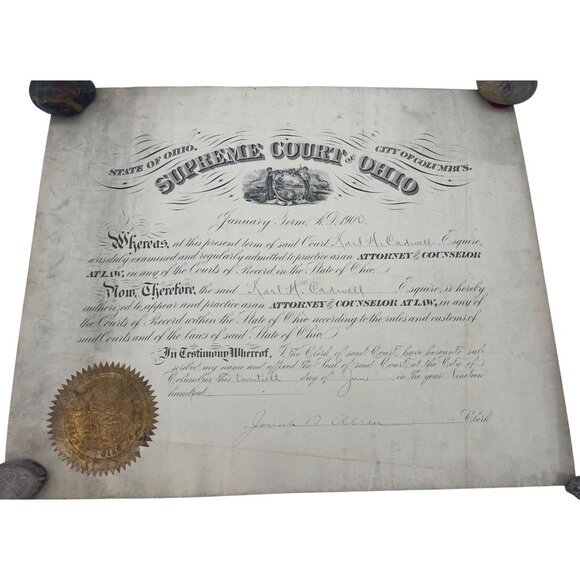 STATE OF OHIO. CITY OF COLUMBUS.
SUPREME COURT OF OHIO
January Term, A.D. 1900.
Whereas, at this present term of said Court Karl H. Cadwell Esquire,
was duly examined and regularly admitted to practice as an ATTORNEY & COUNSELOR
AT LAW, in any of the Courts of Record in the State of Ohio.
Now, Therefore, the said Karl H. Cadwell Esquire, is hereby
authorized to appear and practice as an ATTORNEY & COUNSELOR AT LAW, in any of
the Courts of Record within the State of Ohio according to the rules and customs of
said Courts and of the laws of said State of Ohio.
In Testimony Whereof, I the Clerk of said Court, have hereunto sub-
scribed my name and affixed the Seal of said Court at the City of
Columbus this twentieth day of June, in the year Nineteen
hundred
Josiah B. Allen Clerk